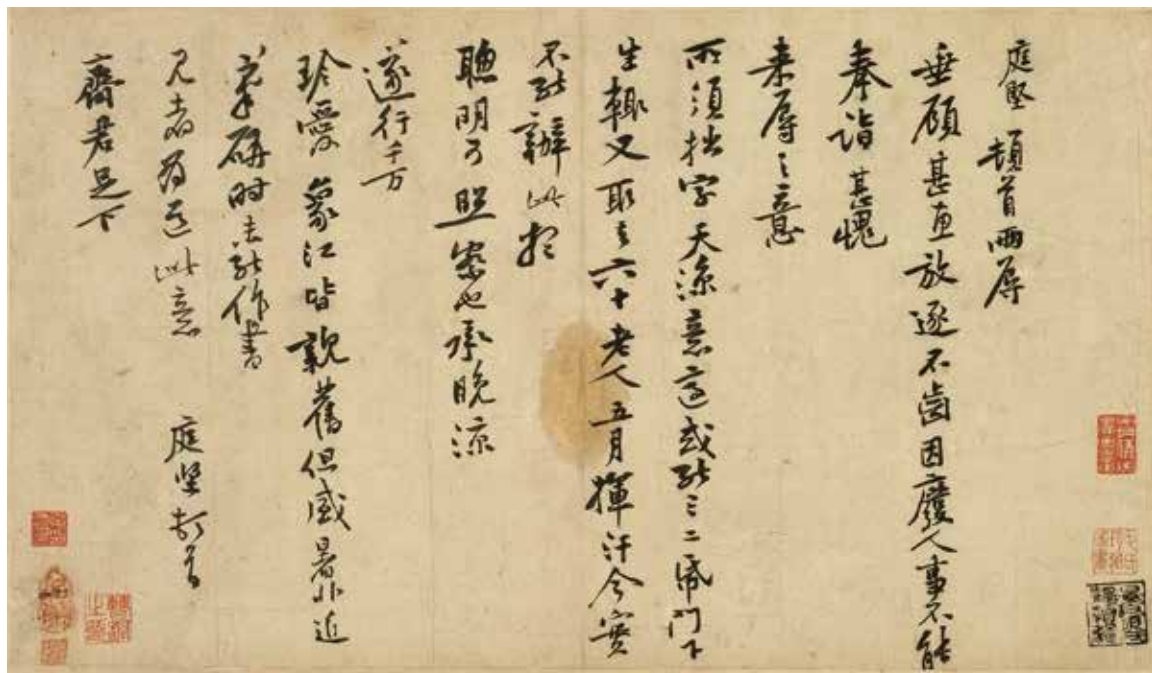 庭堅頓首兩辱
垂顧甚惠放逐不齒因廢人事不能
奉詣甚愧
来辱之意
所須拙字天涼意適或能三二紙門下
生輒又取去六十老人五月揮汗今實
不能辦此想
聰明可照察也承晚涼
遂行千万
珍愛象江皆親舊但盛暑非近
筆硯時未能作書
見者為道此意 庭堅頓首
齊君足下